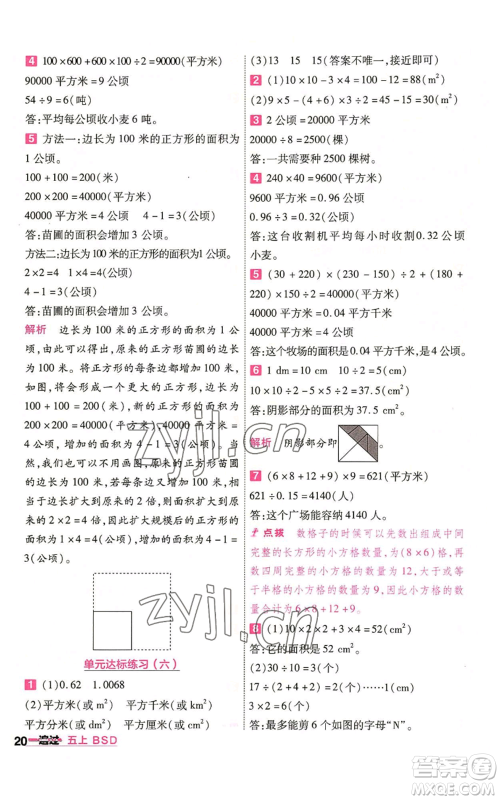 4 100×600+600×100÷2=90000(平方米)
90000 平方米=9 公顷
54÷9=6(吨)
答:平均每公顷收小麦 6 吨。
5 方法一:边长为 100 米的正方形的面积为
1 公顷。
100+100=200(米)
200×200=40000(平方米)
40000 平方米=4 公顷 4-1=3(公顷)
答:苗圃的面积会增加 3 公顷。
方法二:边长为 100 米的正方形的面积为1 公顷。
2×2=4 4-1=3(公顷)
答:苗圃的面积会增加 3 公顷。
解析 边长为 100 米的正方形的面积为 1 公
顷,由此可以得出,原来的正方形苗圃的边长
为 100 米。将正方形的每条边延长 100 米,
就会形成一个更大的正方形,面积为 40000
平方米=4 公顷,增加的面积为 4-1=3(公
顷)。也可以这样想:原来的正方形苗圃的面
积为 1 公顷,若每条边都增加 100 米,
相当于边长扩大到原来的 2 倍,面积就会扩
大到原来的 4 倍,扩大规模后的正方形面积=
4 公顷,增加的面积为 4-1=3(公顷)。
单元达标练习(六)
1 (1)0.62 1.0068
(2)平方米 公顷 平方千米
平方分米(或 dm²) 平方厘米(或 cm²)
20 一遍过 五上 BSD
(3)13 15 15(答案不唯一,接近即可)
2 (1)10×10-3×4=100-12=88(m²)
(2)9×5-(2+4)×5÷2=45-15=30(m²)
3 2 公顷=20000 平方米
20000÷8=2500(棵)
答:一共需要种 2500 棵树。
4 240×40=9600(平方米)
9600 平方米=0.96 公顷
0.96÷3=0.32(公顷)
答:这台收割机平均每小时收割0.32 公顷
小麦。
5 (30+220)×(30+290)÷2=(平方米)
40000 平方米=0.04 平方千米
40000 平方米=4 公顷
答:这个牧场的面积是 0.04 平方千米,是 4
公顷。
6 1 dm=10 cm 10÷2=5(cm)
10×5-5×5÷2=37.5(cm²)
答:阴影部分的面积是 37.5 cm²。
解析 阴影部分即
7 (6×8+12+9)×9=621(平方米)
621÷0.15=4140(人)
答:这个广场能容纳 4140 人。
点拨 数格子的时候可以先数出组成中间
完整的长方形的小方格的数量,为(8×6)格,
再数四周完整的小方格的数量,为12,大于或等
于半格的不完整的小方格的数量为 9,所以
合计为 6×8+12+9。
8 (1)10×2×2+3×4=52(cm²)
答:它的面积是 52 cm²。
(2)30÷10=3(行)
17÷(2+2)=4(个)……1(cm)
4×3=12(个)
答:最多能剪 12 个如图的字母“N”。